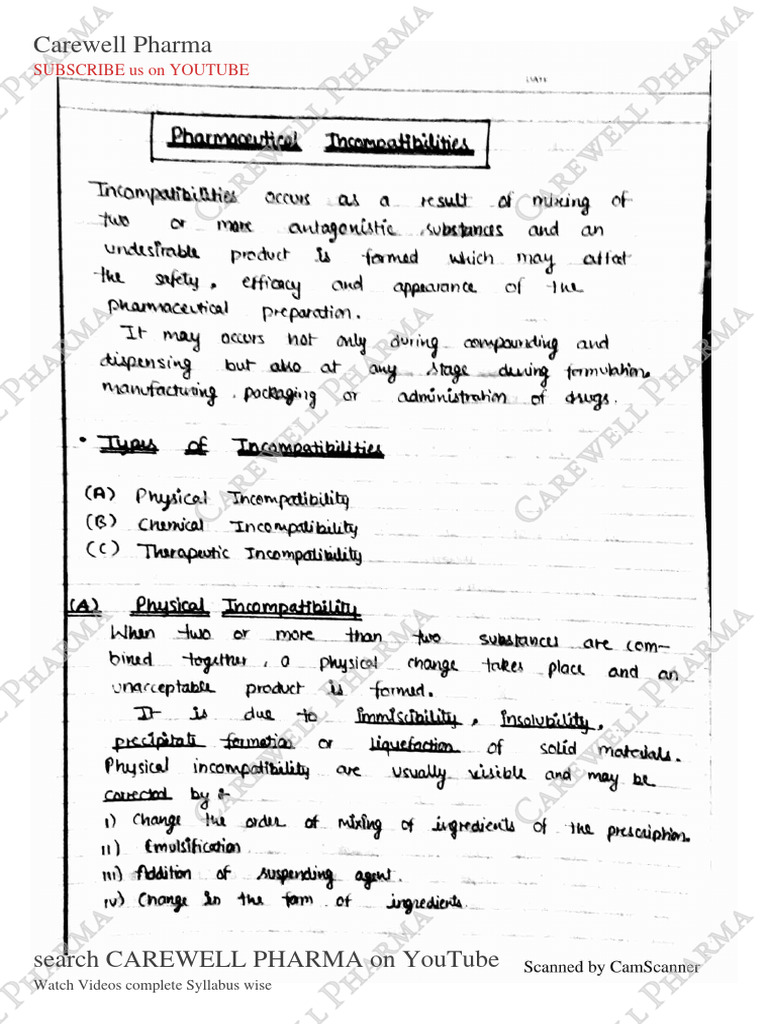 Carewell Pharma
SUBSCRIBE us on YOUTUBE
DATE
Pharmaceutical Incompatibilities
Incompatibilities occurs as a result of mixing of
two or more antagonistic substances and an
undesirable product is formed which may affect
the safety, efficacy and appearance of the
pharmaceutical preparation.
It may occurs not only during compounding and
dispensing but also at any stage during formulation,
manufacturing, packaging or administration of drugs.
• Types of Incompatibilities
(A) Physical Incompatibility
(B) Chemical Incompatibility
(C) Therapeutic Incompatibility
(A) Physical Incompatibility
When two or more than two substances are com-
bined together, a physical change takes place and an
unacceptable product is formed.
It is due to immiscibility, insolubility,
precipitate formation or liquefaction of solid materials.
Physical incompatibility are usually visible and may be
corrected by :-
i) Change the order of mixing of ingredients of the prescription.
ii) Emulsification
iii) Addition of suspending agent.
iv) Change in the form of ingredients.
search CAREWELL PHARMA on YouTube
Scanned by CamScanner
Watch Videos complete Syllabus wise
CAREWELL PHARMA